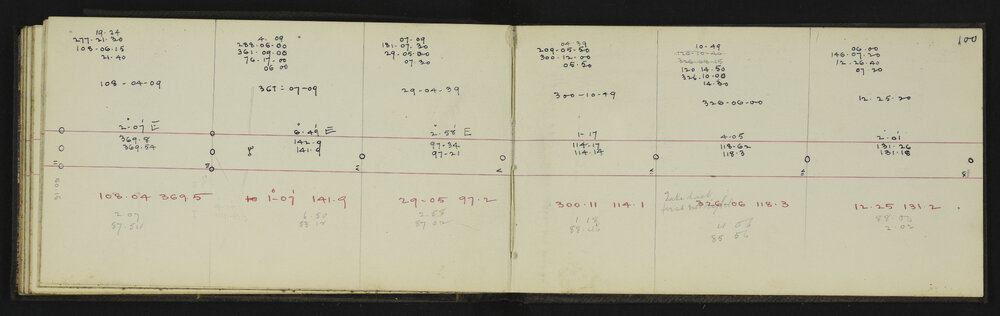 100
19.24
277-21.20
108-06.15
21.40
108-04-09
2.07 E
369.8
369.54
108.04 369.5
2.07
87.54
4.09
288.06.00
361.09.00
76.17.00
06 00
361=07-09
6.49 E
142.9
141.9
1-07 141.9
6.50
07.09
181.07.20
29-05.00
07.20
29-04-39
2.58 E
97-34
97-21
29-05 97.2
2.58
87.02
04.39
209-05-20
300.12.00
05.20
300-10-49
1-17
114.17
114.14
300.11 114.1
10-49
120.14.50
326.10.00
14.30
326-06-00
4.05
118.62
118.3
326.06 118.3
85 56
06.00
146.07.20
12.26.40
07 20
12.25.20
2.01
131.26
131.18
12.25 131.2
88.00
2.02